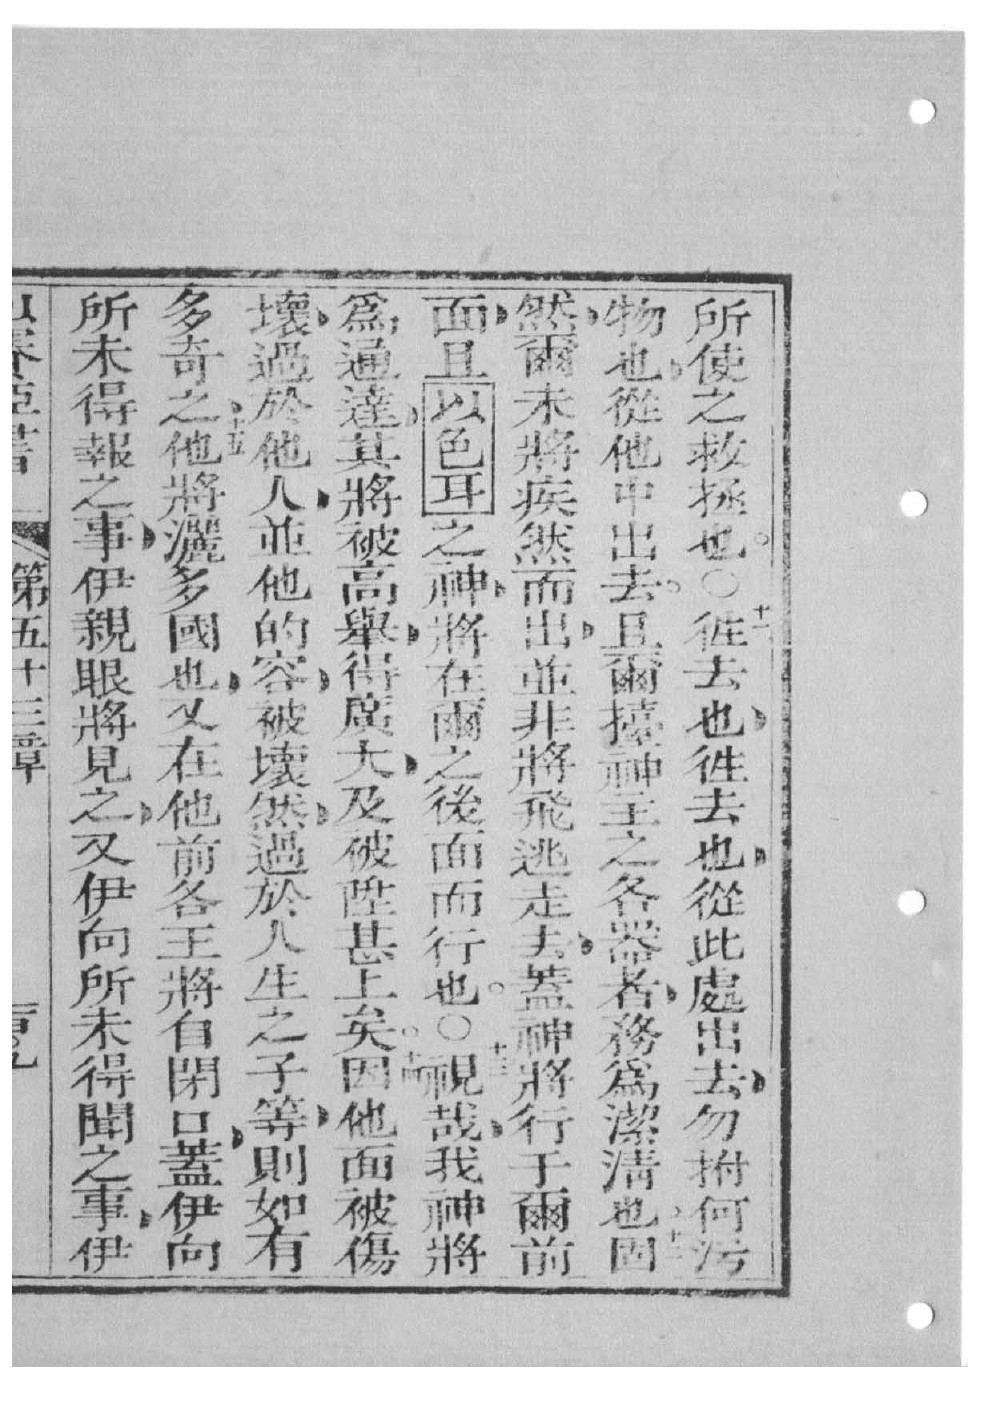 所使之救拯也。〇十一徃去也徃去也從此處出去勿拊何污
物也從他中出去。且爾擡神主之各器者務為潔清也十二因
然爾未將疾然而出並非將飛逃走去蓋神將行于爾前
面且以色耳之神將在爾之後面而行也。〇十三視哉我神將
為通達其將被高舉得廣大及破陞甚上矣。十四因他面被傷
壞過於他人並他的容被壞然過於人生之子等則如有
多奇之十五他將灑多國也又在他前各王將自閉口蓋伊向
所未得報之事伊親眼將見之又伊向所未得聞之事伊
以賽亞書 第五十三章